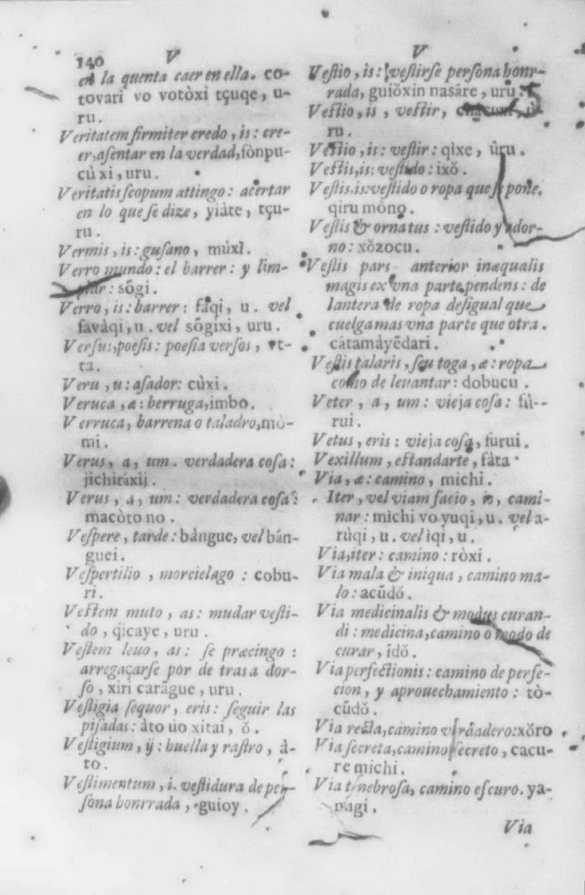 140 V
en la quenta caer en ella. co-
tovari vo votòxi tçuqe, u-
ru.
Veritatem firmiter credo, is: cre-
er, asentar en la verdad, fònpu-
cù xi, uru.
Veritatis scopum attingo: acertar
en lo que se dize, yiàte, tçu-
ru.
Vermis, is: gusano, muxi.
Verro mundo: el barrer: y lim-
piar: sŏgi.
Verro, is: barrer: fàqi, u. vel
favàqi, u. vel sŏgixi, uru.
Versus, poesis: poesia versos, vt-
ta.
Veru, u: asador: cùxi.
Veruca, æ: berruga, imbo.
Verruca, barrena o taladro, mò-
mi.
Verus, a, um. verdadera cosa:
jichiraxij.
Verus, a, um: verdadera cosa:
macòto no.
Vespere, tarde: bàngue, vel bán-
guei.
Vespertilio, morcielago: cobu-
ri.
Vestem muto, as: mudar vesti-
do, qicaye, uru.
Vestem leuo, as: se præcingo:
arregaçarse por de tras a dor-
so, xiri carágue, uru.
Vestigia sequor, eris: seguir las
pijadas: àto uo xitai, ŏ.
Vestigium, ÿ: huella y rastro, à-
to.
Vestimentum, i. vestidura de per-
sona honrrada, guioy.
V
Vestio, is: vestirse persona honr-
rada, guiŏxin nasàre, uru.
Vestio, is, vestir, ù-
ru.
Vestio, is: vestir: qixe, ùru.
Vestis, is: vestido: ixŏ.
Vestis. is: vestido o ropa que se pone.
qiru mono.
Vestis & ornatus: vestido y ador-
no: xŏzocu.
Vestis pars anterior inæqualis
magis ex vna parte pendens: de
lantera de ropa desigual que
cuelga mas vna parte que otra.
cátamàyĕdari.
Vestis talaris, seu toga, æ: ropa
como de levantar: dobucu.
Veter, a, um: vieja cosa: fù-
rui.
Vetus, eris: vieja cosa, furui.
Vexillum, estandarte, fàta
Via, æ: camino, michi.
Iter, vel viam facio, is, cami-
nar: mìchi vo yuqi, u. vel a-
rùqi, u. vel ìqi, u.
Via, iter: camino: ròxi.
Via mala & iniqua, camino ma-
lo: acŭdó.
Via medicinalis & modus curan-
di: medicina, camino o modo de
curar, idŏ.
Via perfectionis: camino de perfe-
cion, y aprouechamiento: tò-
cŭdŏ.
Via recta, camino verdadero: xŏro
Via secreta, camino secreto, cacu-
re michi.
Via tenebrosa, camino escuro. ya-
màgi.
Via